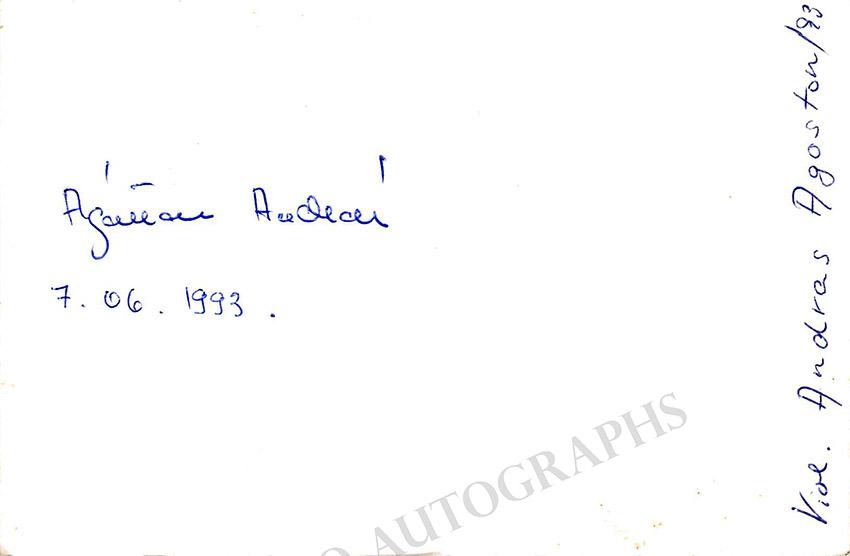 Ágoston András
7. 06. 1993.
Viol. Andras Agoston/93
O AUTOGRAPHS